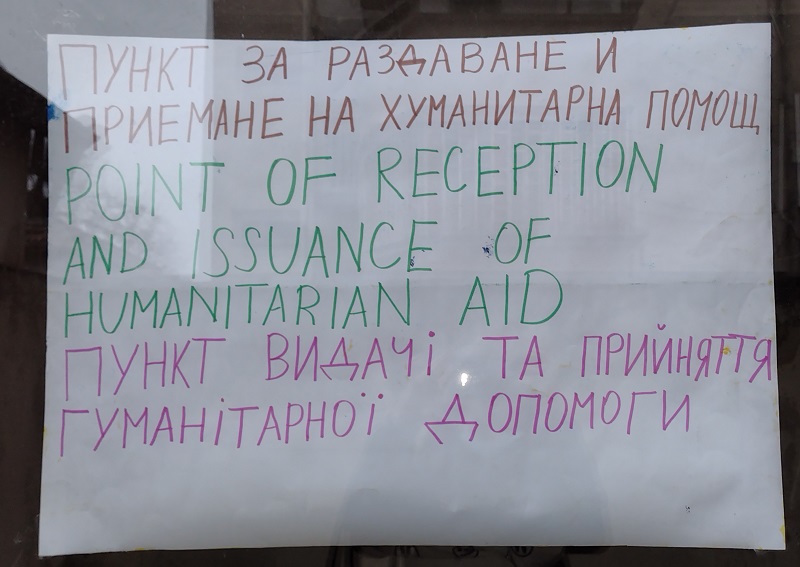 ПУНКТ ЗА РАЗДАВАНЕ И
ПРИЕМАНЕ НА ХУМАНИТАРНА ПОМОЩ
POINT OF RECEPTION
AND ISSUANCE OF
HUMANITARIAN AID
ПУНКТ ВИДАЧІ ТА ПРИЙНЯТТЯ
ГУМАНІТАРНОЇ ДОПОМОГИ